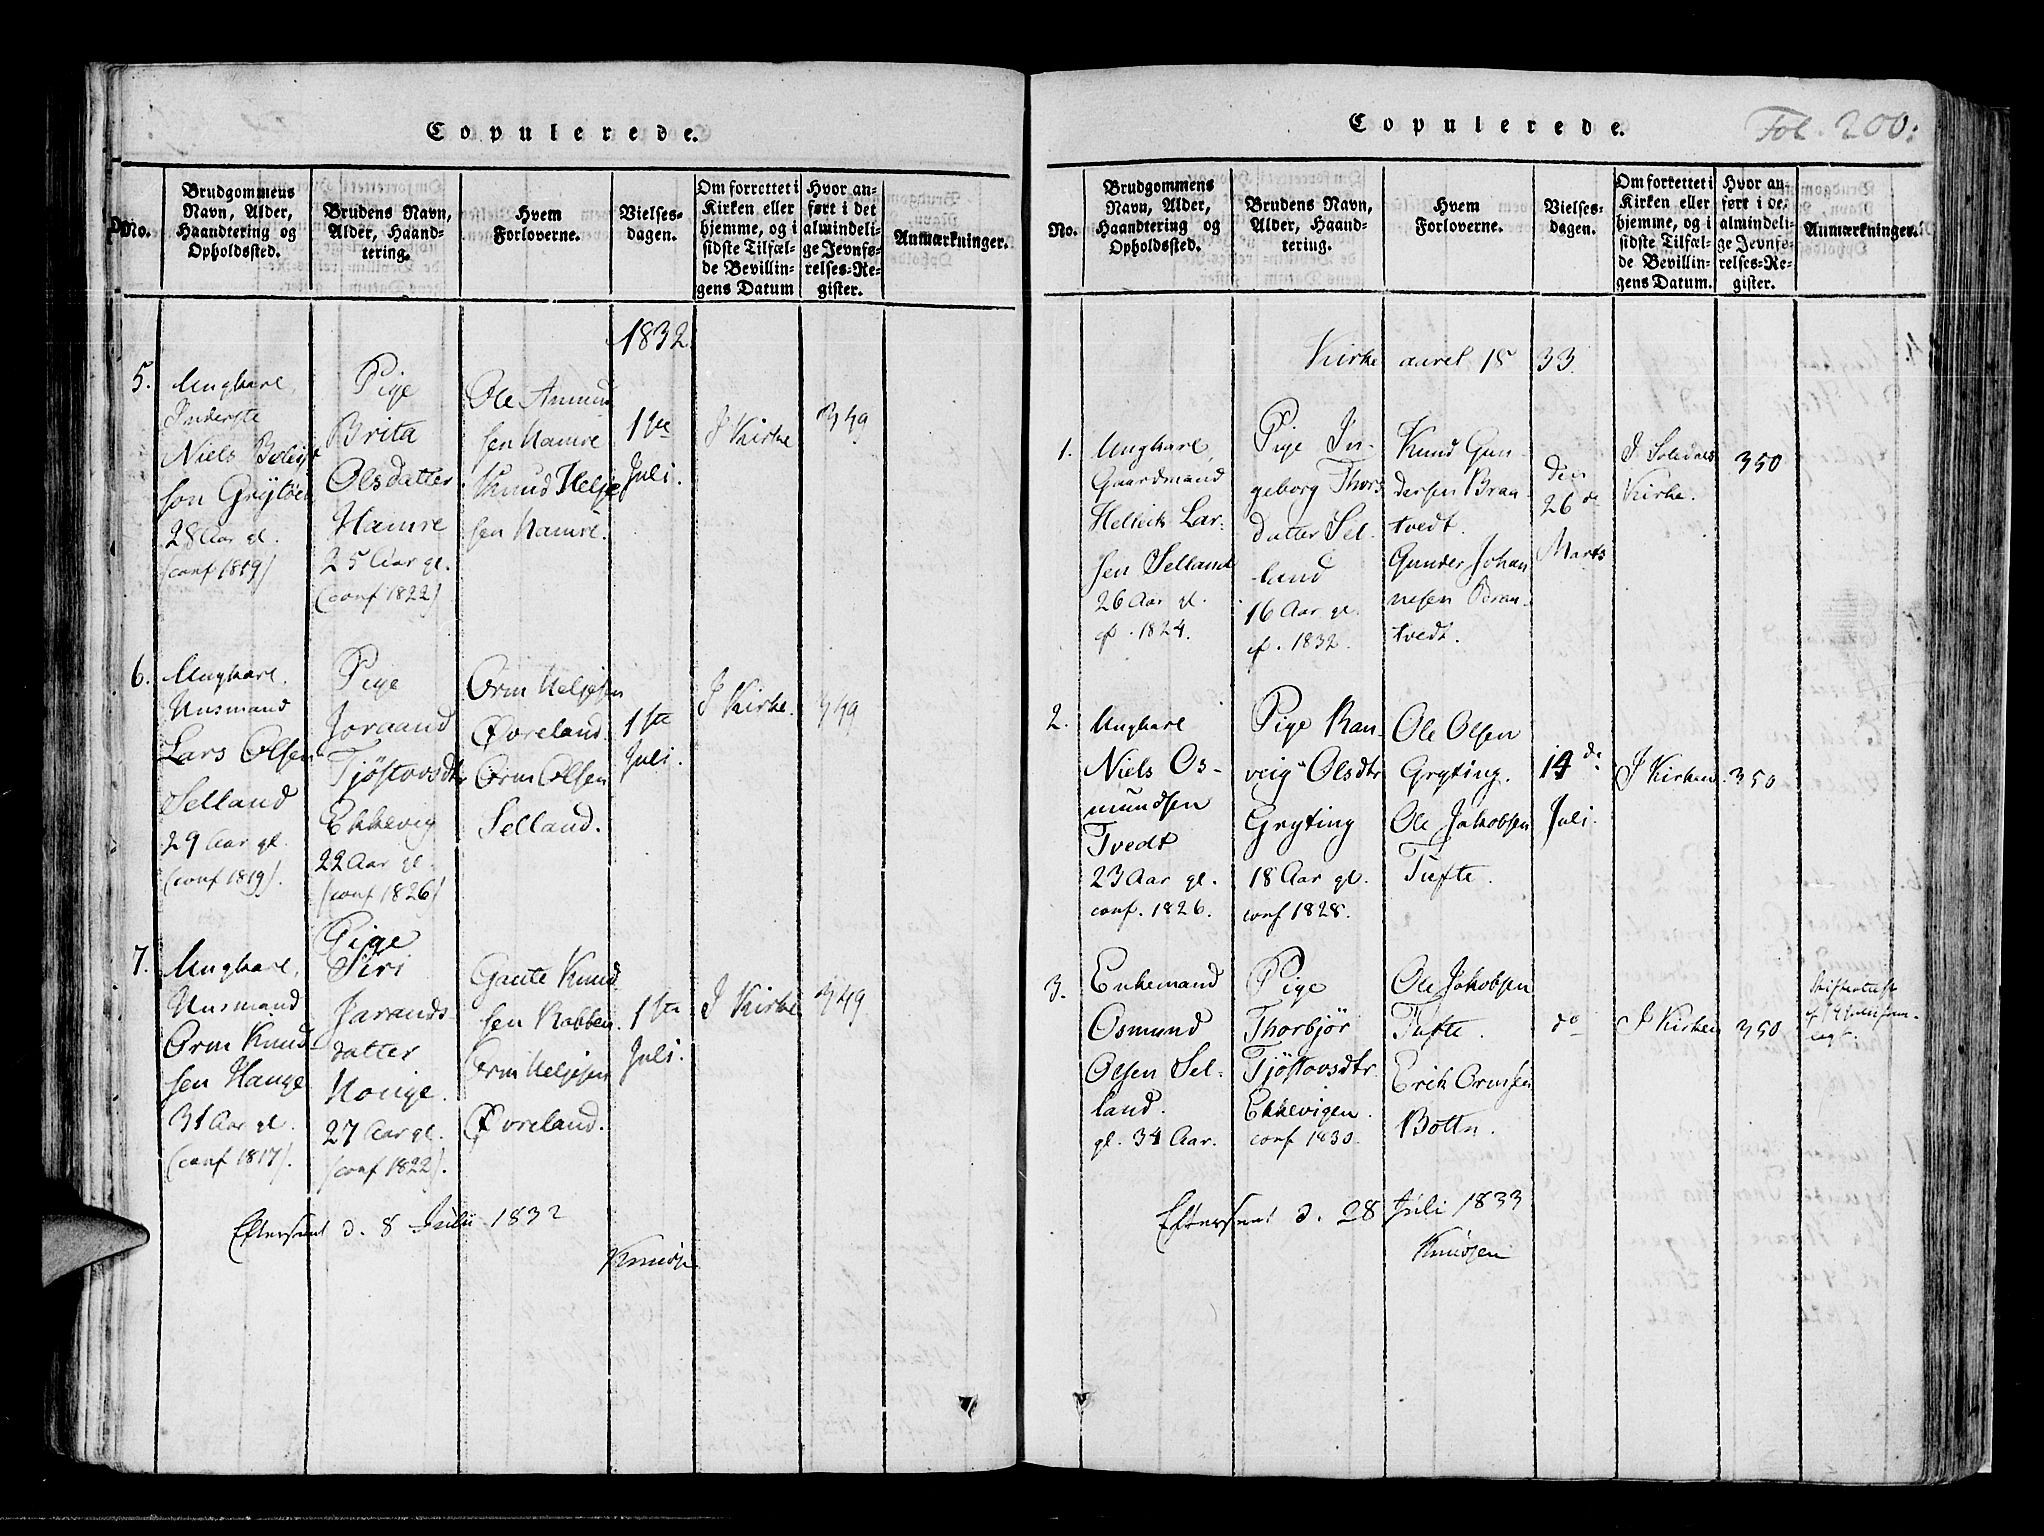 Copulerede.
No.
Brudgommens
Navn, Alder,
Haandtering og
Opholdssted.
Brudens Navn,
Alder, Haand-
tering.
Hvem
Forloverne.
Vielses-
dagen.
Om forrettet i
Kirken eller
hjemme, og i
sidste Tilfæl-
de Bevillin-
gens Datum
Hvor an-
ført i det
almindeli-
ge Jevnfø-
relses-Re-
gister.
Anmærkninger.
1832
5.
Ungkarl,
Inderste
Niels
28 Aar gl.
(conf 1819)
Pige
Brita
Olsdatter
Hamre
25 Aar gl.
(conf 1822)
Ole Anmun
sen Hamre
Knud Helje
sen Hamre.
1ste
Juli.
I Kirke
349
6.
Ungkarl.
Husmand
Lars Olsen
Selland
29 Aar gl.
(conf 1819).
Pige
Joraand
Tjöstovsdtr
Ekkevig
22 Aar gl.
(conf 1826)
Orm Heljesen
Øvreland.
Orm Olsen
Selland.
1ste
Juli.
I Kirke.
349
7.
Ungkarl,
Husmand
Orm Knud
sen Hauge
31 Aar gl.
(conf 1817).
Pige
Siri
Jarands
datter
Houge.
27 Aar gl.
(conf 1822).
Gaute Knud
sen Robben.
Orm Heljesen
Øvreland.
1ste
Juli.
I Kirke
349
Efterseet d. 8 Julii 1832
Knudse
Copulerede.
Fol. 200.
No.
Brudgommens
Navn, Alder,
Haandtering og
Opholdssted.
Brudens Navn,
Alder, Haand-
tering.
Hvem
Forloverne.
Vielses-
dagen.
Om forrettet i
Kirken eller
hjemme, og i
sidste Tilfæl-
de Bevillin-
gens Datum.
Hvor an-
ført i de.
almindeli-
ge Jevnfø-
relses-Re-
gister.
Anmærkninger.
Kirke aaret 18 33.
1.
Ungkarl,
Gaardmand
Hellek Lar-
sen Selland
26 Aar gl.
cf. 1824.
Pige In-
geborg Thors
datter Sel-
land
16 Aar gl.
cf. 1832.
Knud Gun-
dersen Bran-
tvedt.
Gunder Johan
nesen Bran-
tvedt.
den
26de
Marts
I
Kirke.
350
2.
Ungkarl
Niels Os-
mundsen
Tvedt
23 Aar gl.
conf. 1826.
Pige Ran-
veig Olsdtr
Gryting
18 Aar gl.
conf 1828.
Ole Olsen
Gryting.
Ole Jakobsen
Tufte.
14de
Juli.
I Kirken.
350
3.
Enkemand
Osmund
Olsen Sel-
land.
gl. 34 Aar.
Pige
Thorbjör
Tjöstovsdtr
Ekkevigen.
conf 1830.
Ole Jakobsen
Tufte.
Erik Ormsen
Botten.
do
I Kirken
350
Efterseet d. 28 Juli 1833
Knudsen